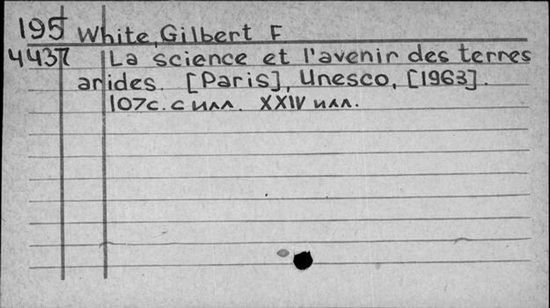 195 White, Gilbert F
4437 La science et l'avenir des terres
arides. [Paris], Unesco, [1963].
107с. с илл. XXIV илл.